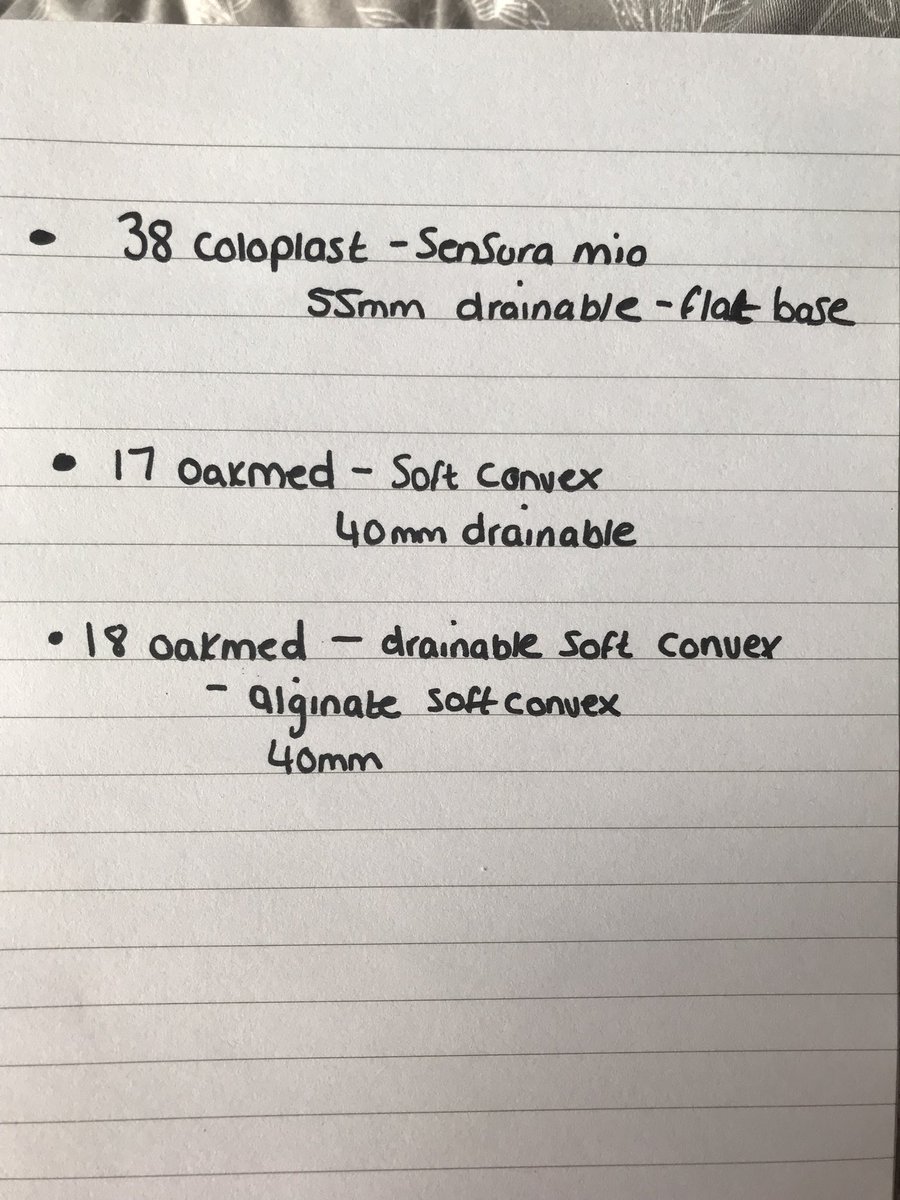 • 38 Coloplast - Sensura mio
55mm drainable - flat base
• 17 Oakmed - Soft Convex
40mm drainable
• 18 Oakmed - drainable Soft Convex
- alginate soft convex
40mm